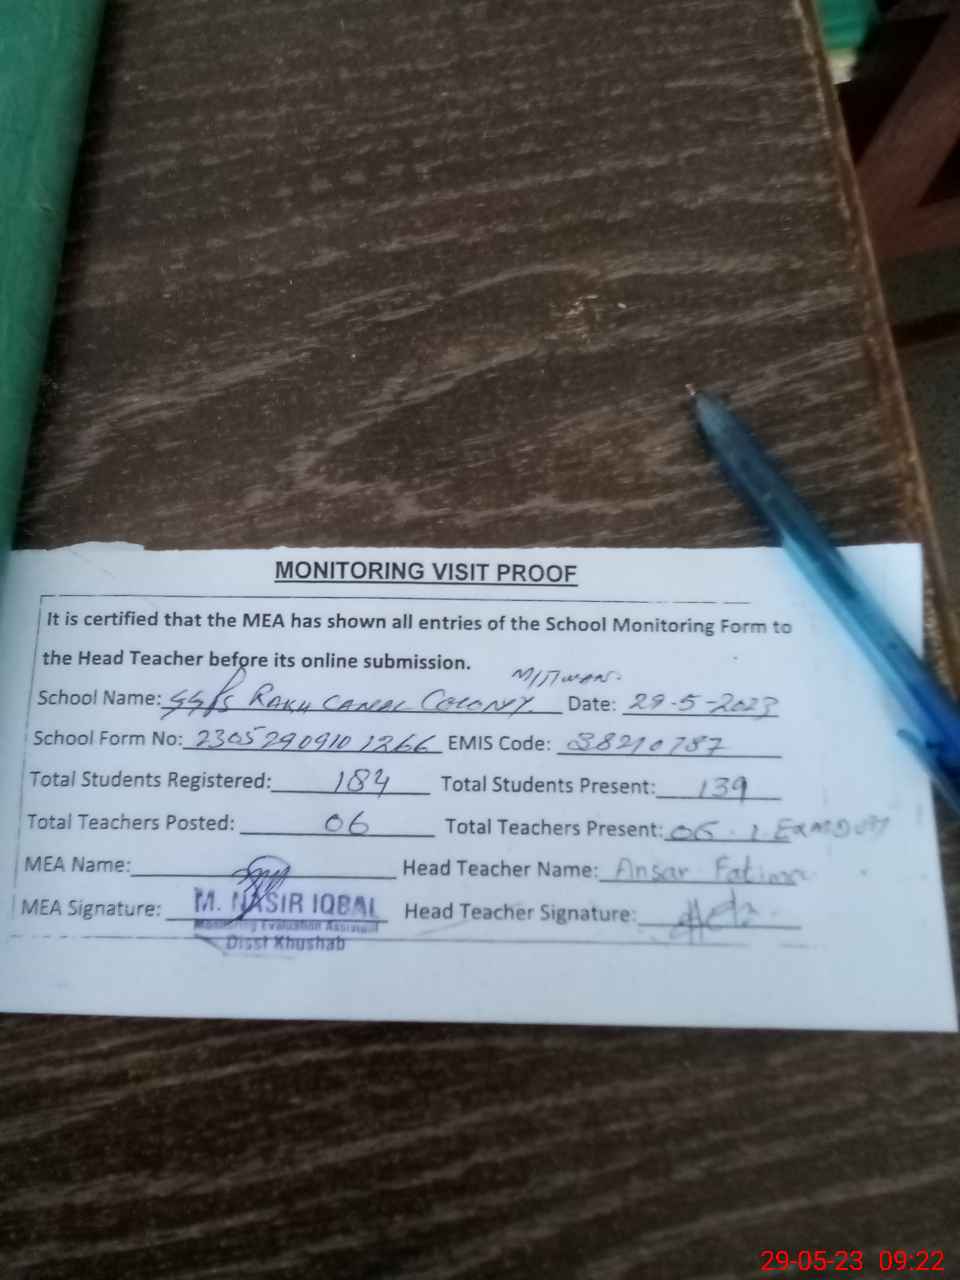 MONITORING VISIT PROOF
It is certified that the MEA has shown all entries of the School Monitoring Form to
the Head Teacher before its online submission.
School Name: GGPS RAKH CANAL COLONY MITTWAN. Date: 29-5-2023
School Form No: 23052909101266 EMIS Code: 38210787
Total Students Registered: 184 Total Students Present: 139
Total Teachers Posted: 06 Total Teachers Present: 06
MEA Name: Head Teacher Name: Ansar Fatima
MEA Signature: M. NASIR IQBAL Head Teacher Signature:
Monitoring Evaluation Assistant
Disst Khushab
29-05-23 09:22